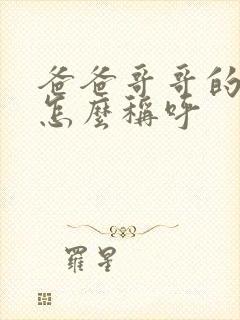 爸爸哥哥的
怎麼稱呼
羅星